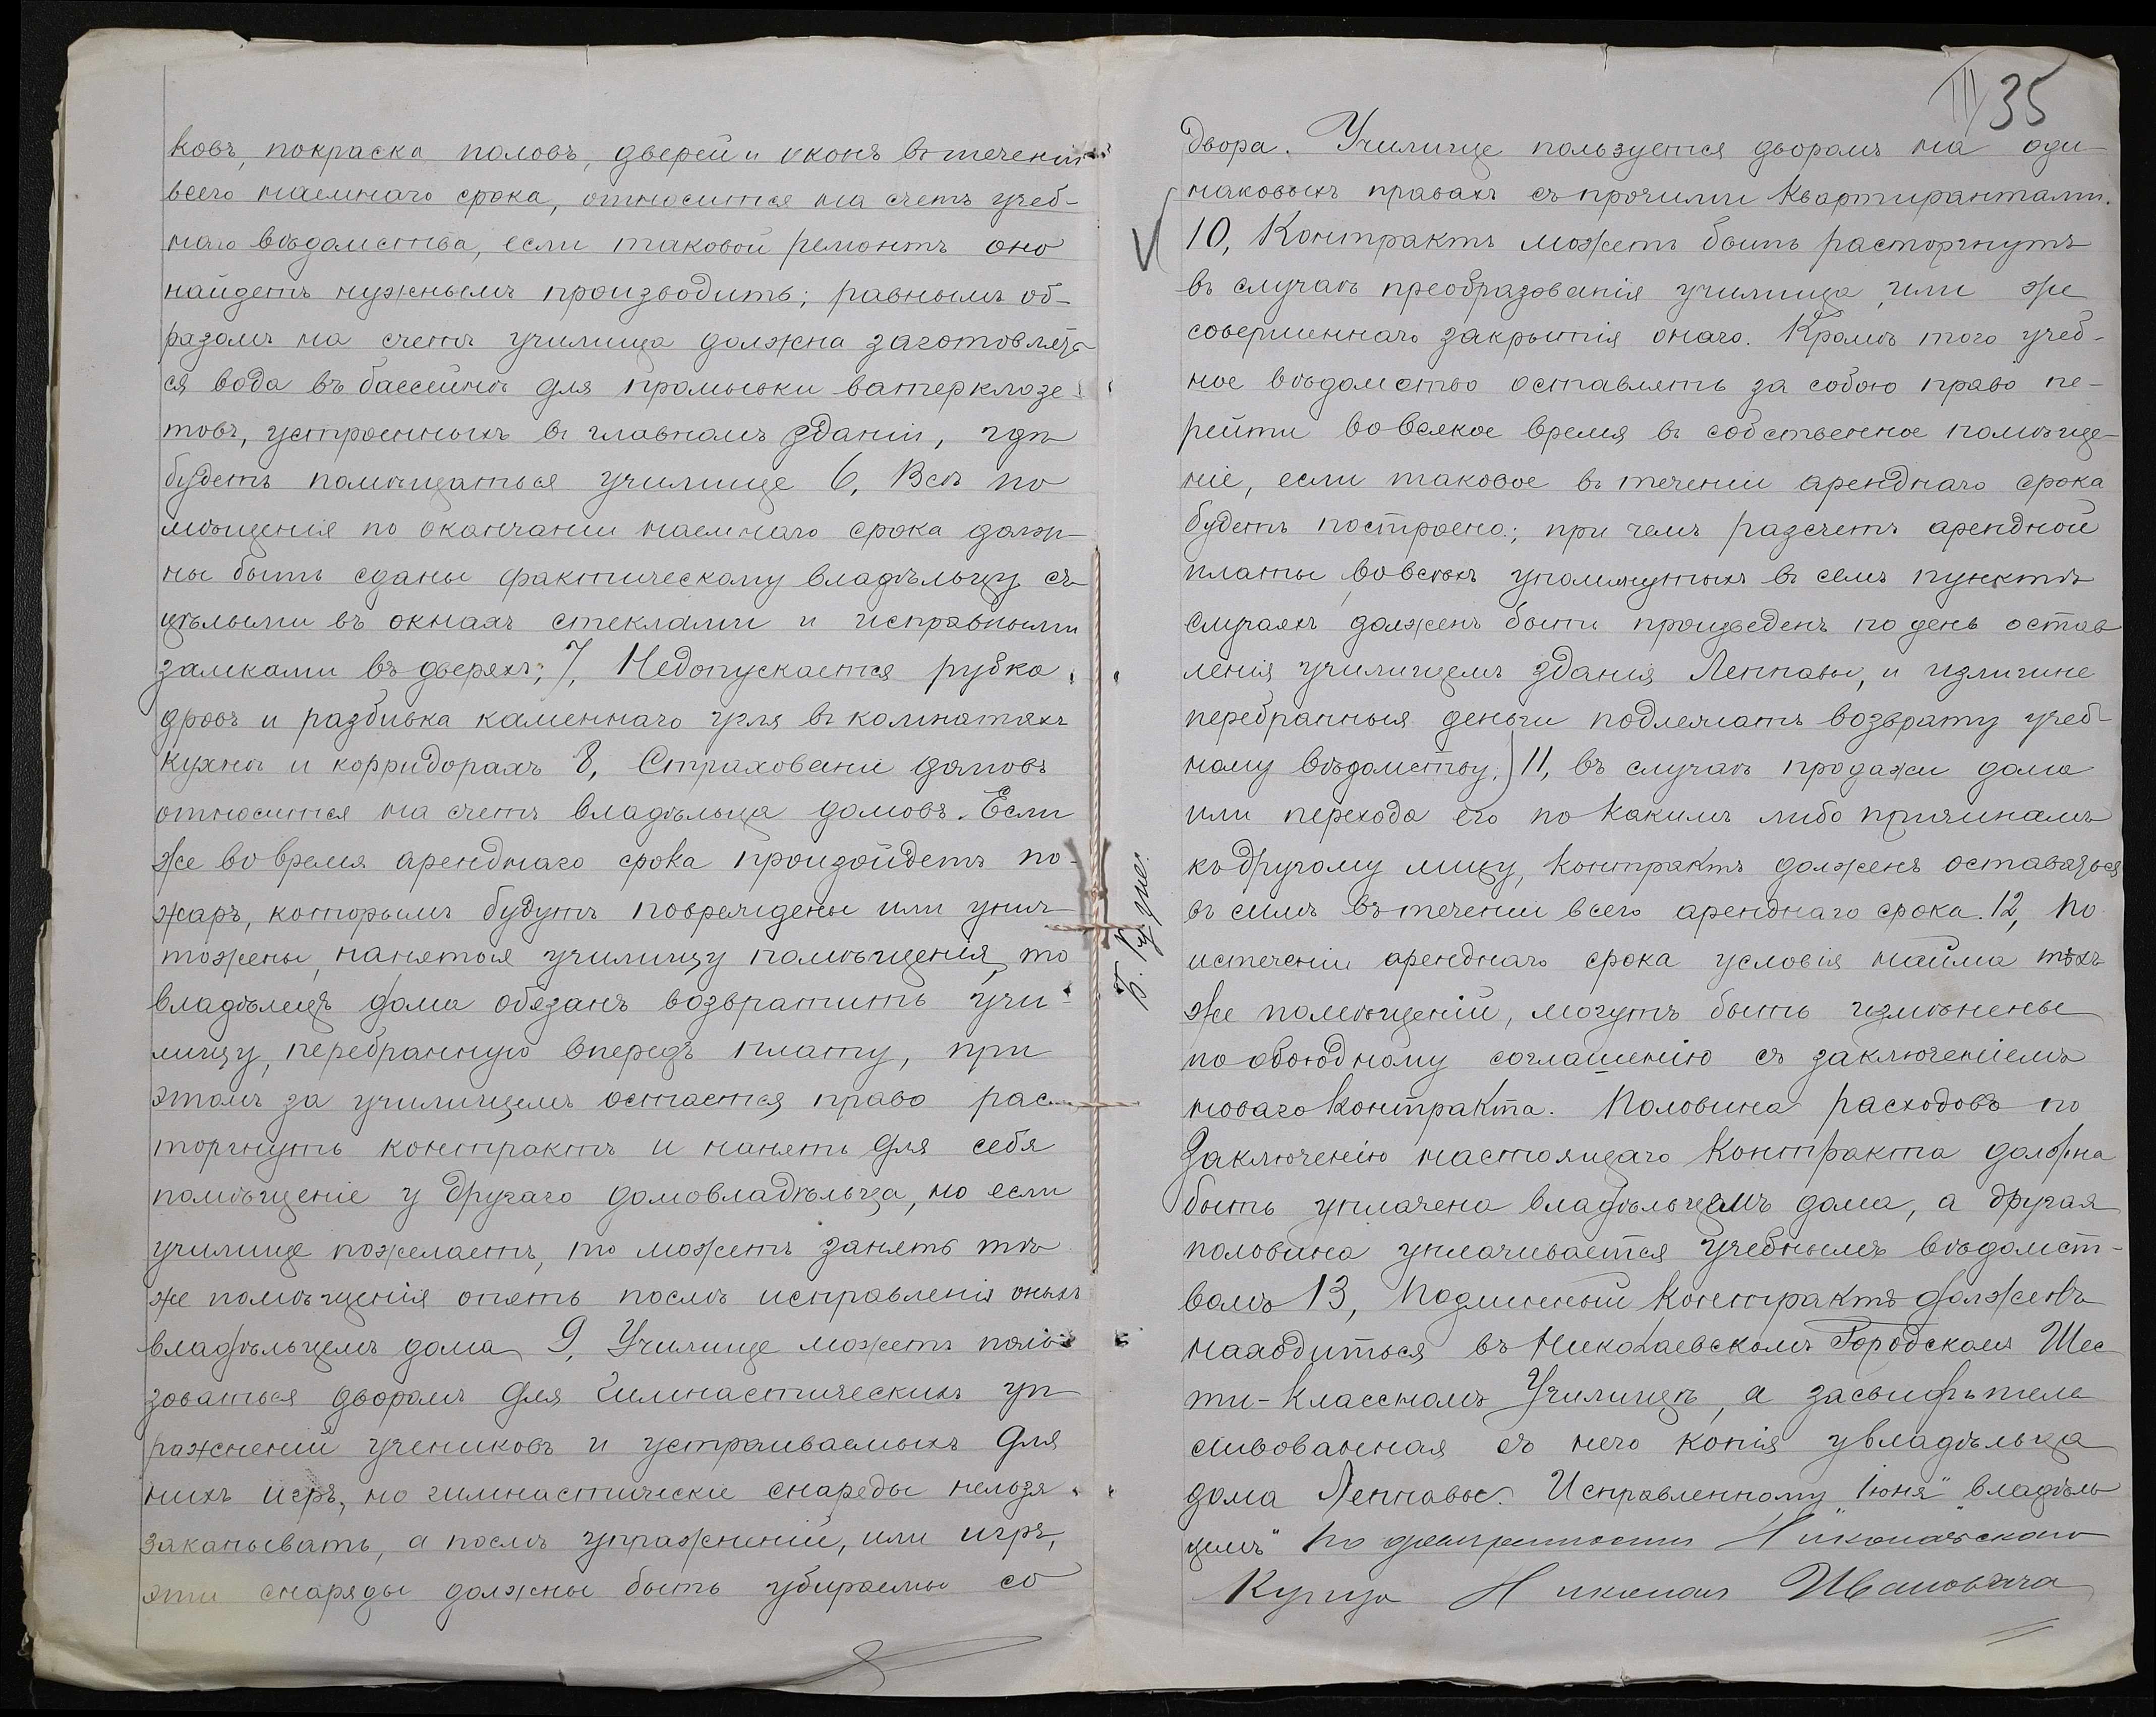 ковъ, покраска половъ, дверей и оконъ въ теченіи
всего наемнаго срока, относится на счетъ учеб-
наго вѣдомства, если таковой ремонтъ оно
найдетъ нужнымъ производить; равнымъ об-
разомъ на счетъ училища должна заготовлять-
ся вода въ бассейнѣ для промывки ватерклозе-
товъ, устроенныхъ въ главномъ зданіи, гдѣ
будетъ помѣщаться училище 6, Всѣ по
мѣщенія по окончаніи наемнаго срока долж-
ны быть сданы фактическому владѣльцу съ
цѣлыми въ окнахъ стеклами и исправными
замками въ дверяхъ; 7, Недопускается рубка
дровъ и разбивка каменнаго угля въ комнатахъ
кухнѣ и корридорахъ 8, Страхованіе домовъ
относится на счетъ владѣльца домовъ. Если
же во время аренднаго срока произойдетъ по-
жаръ, которымъ будутъ повреждены или унич-
тожены, нанятыя училищу помѣщенія, то
владѣлецъ дома обязанъ возвратить учи-
лищу, перебранную впередъ плату, при
этомъ за училищемъ остается право рас-
торгнуть контрактъ и нанять для себя
помѣщеніе у другаго домовладѣльца, но если
училище пожелаетъ, то можетъ занять тѣ
же помѣщенія опять послѣ исправленія оныхъ
владѣльцемъ дома 9, Училище можетъ поль-
зоваться дворомъ для гимнастическихъ уп
ражненій учениковъ и устраиваемыхъ для
нихъ игръ, но гимнастическіе снаряды нельзя
закапывать, а послѣ упражненій, или игръ,
эти снаряды должны быть убираемы со
III 35
двора. Училище пользуется дворомъ на оди-
наковыхъ правахъ съ прочими квартирантами.
10, Контрактъ можетъ быть расторгнутъ
въ случаѣ преобразованія училища, или же
совершеннаго закрытія онаго. Кромѣ того учеб-
ное вѣдомство оставляетъ за собою право пе-
рейти во всякое время въ собственное помѣще-
ніе, если таковое въ теченіи аренднаго срока
будетъ построено; при чемъ разсчетъ арендной
платы во всѣхъ упомянутыхъ въ семъ пунктѣ
случаяхъ долженъ быть произведенъ по день остав
ленія училищемъ зданія Леппавы, и излишне
перебранныя деньги подлежатъ возврату учеб-
ному вѣдомству.) 11, въ случаѣ продажи дома
или перехода его по какимъ либо причинамъ
къ другому лицу, контрактъ долженъ оставаться
въ силѣ въ теченіи всего аренднаго срока. 12, По
истеченіи аренднаго срока условія найма тѣхъ
же помѣщеній, могутъ быть измѣнены
по обоюдному соглашенію съ заключеніемъ
новаго контракта. Половина расходовъ по
заключенію настоящаго контракта должна
быть уплачена владѣльцемъ дома, а другая
половина уплачивается учебнымъ вѣдомст-
вомъ 13, Подлинный контрактъ долженъ
находиться въ Николаевскомъ Городскомъ Шес
ти-классномъ Училищѣ, а засвидѣтель
ствованная съ него копія у владѣльца
дома Леппавы. Исправленному „Іюня" „владѣль
цемъ" По довѣренности Николаевскаго
Купца Николая Ивановича